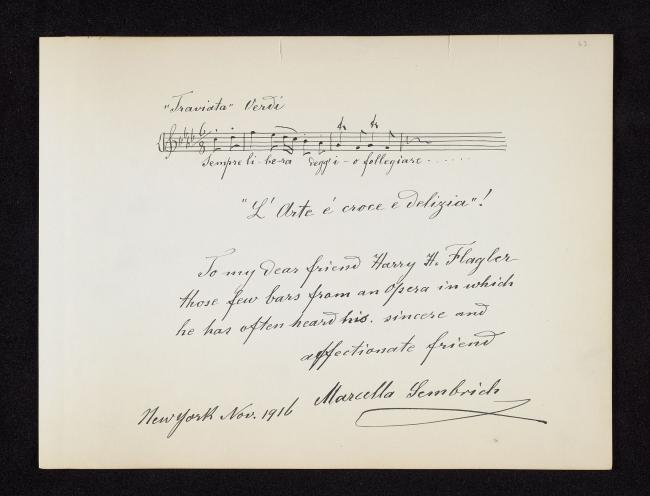 63
"Traviata" Verdi
6 8
Sempre li-be-ra degg'i-o follegiare......
"L'Arte é croce e delizia"!
To my dear friend Harry H. Flagler
those few bars from an Opera in which
he has often heard his. sincere and
affectionate friend
Marcella Sembrich
New York Nov. 1916